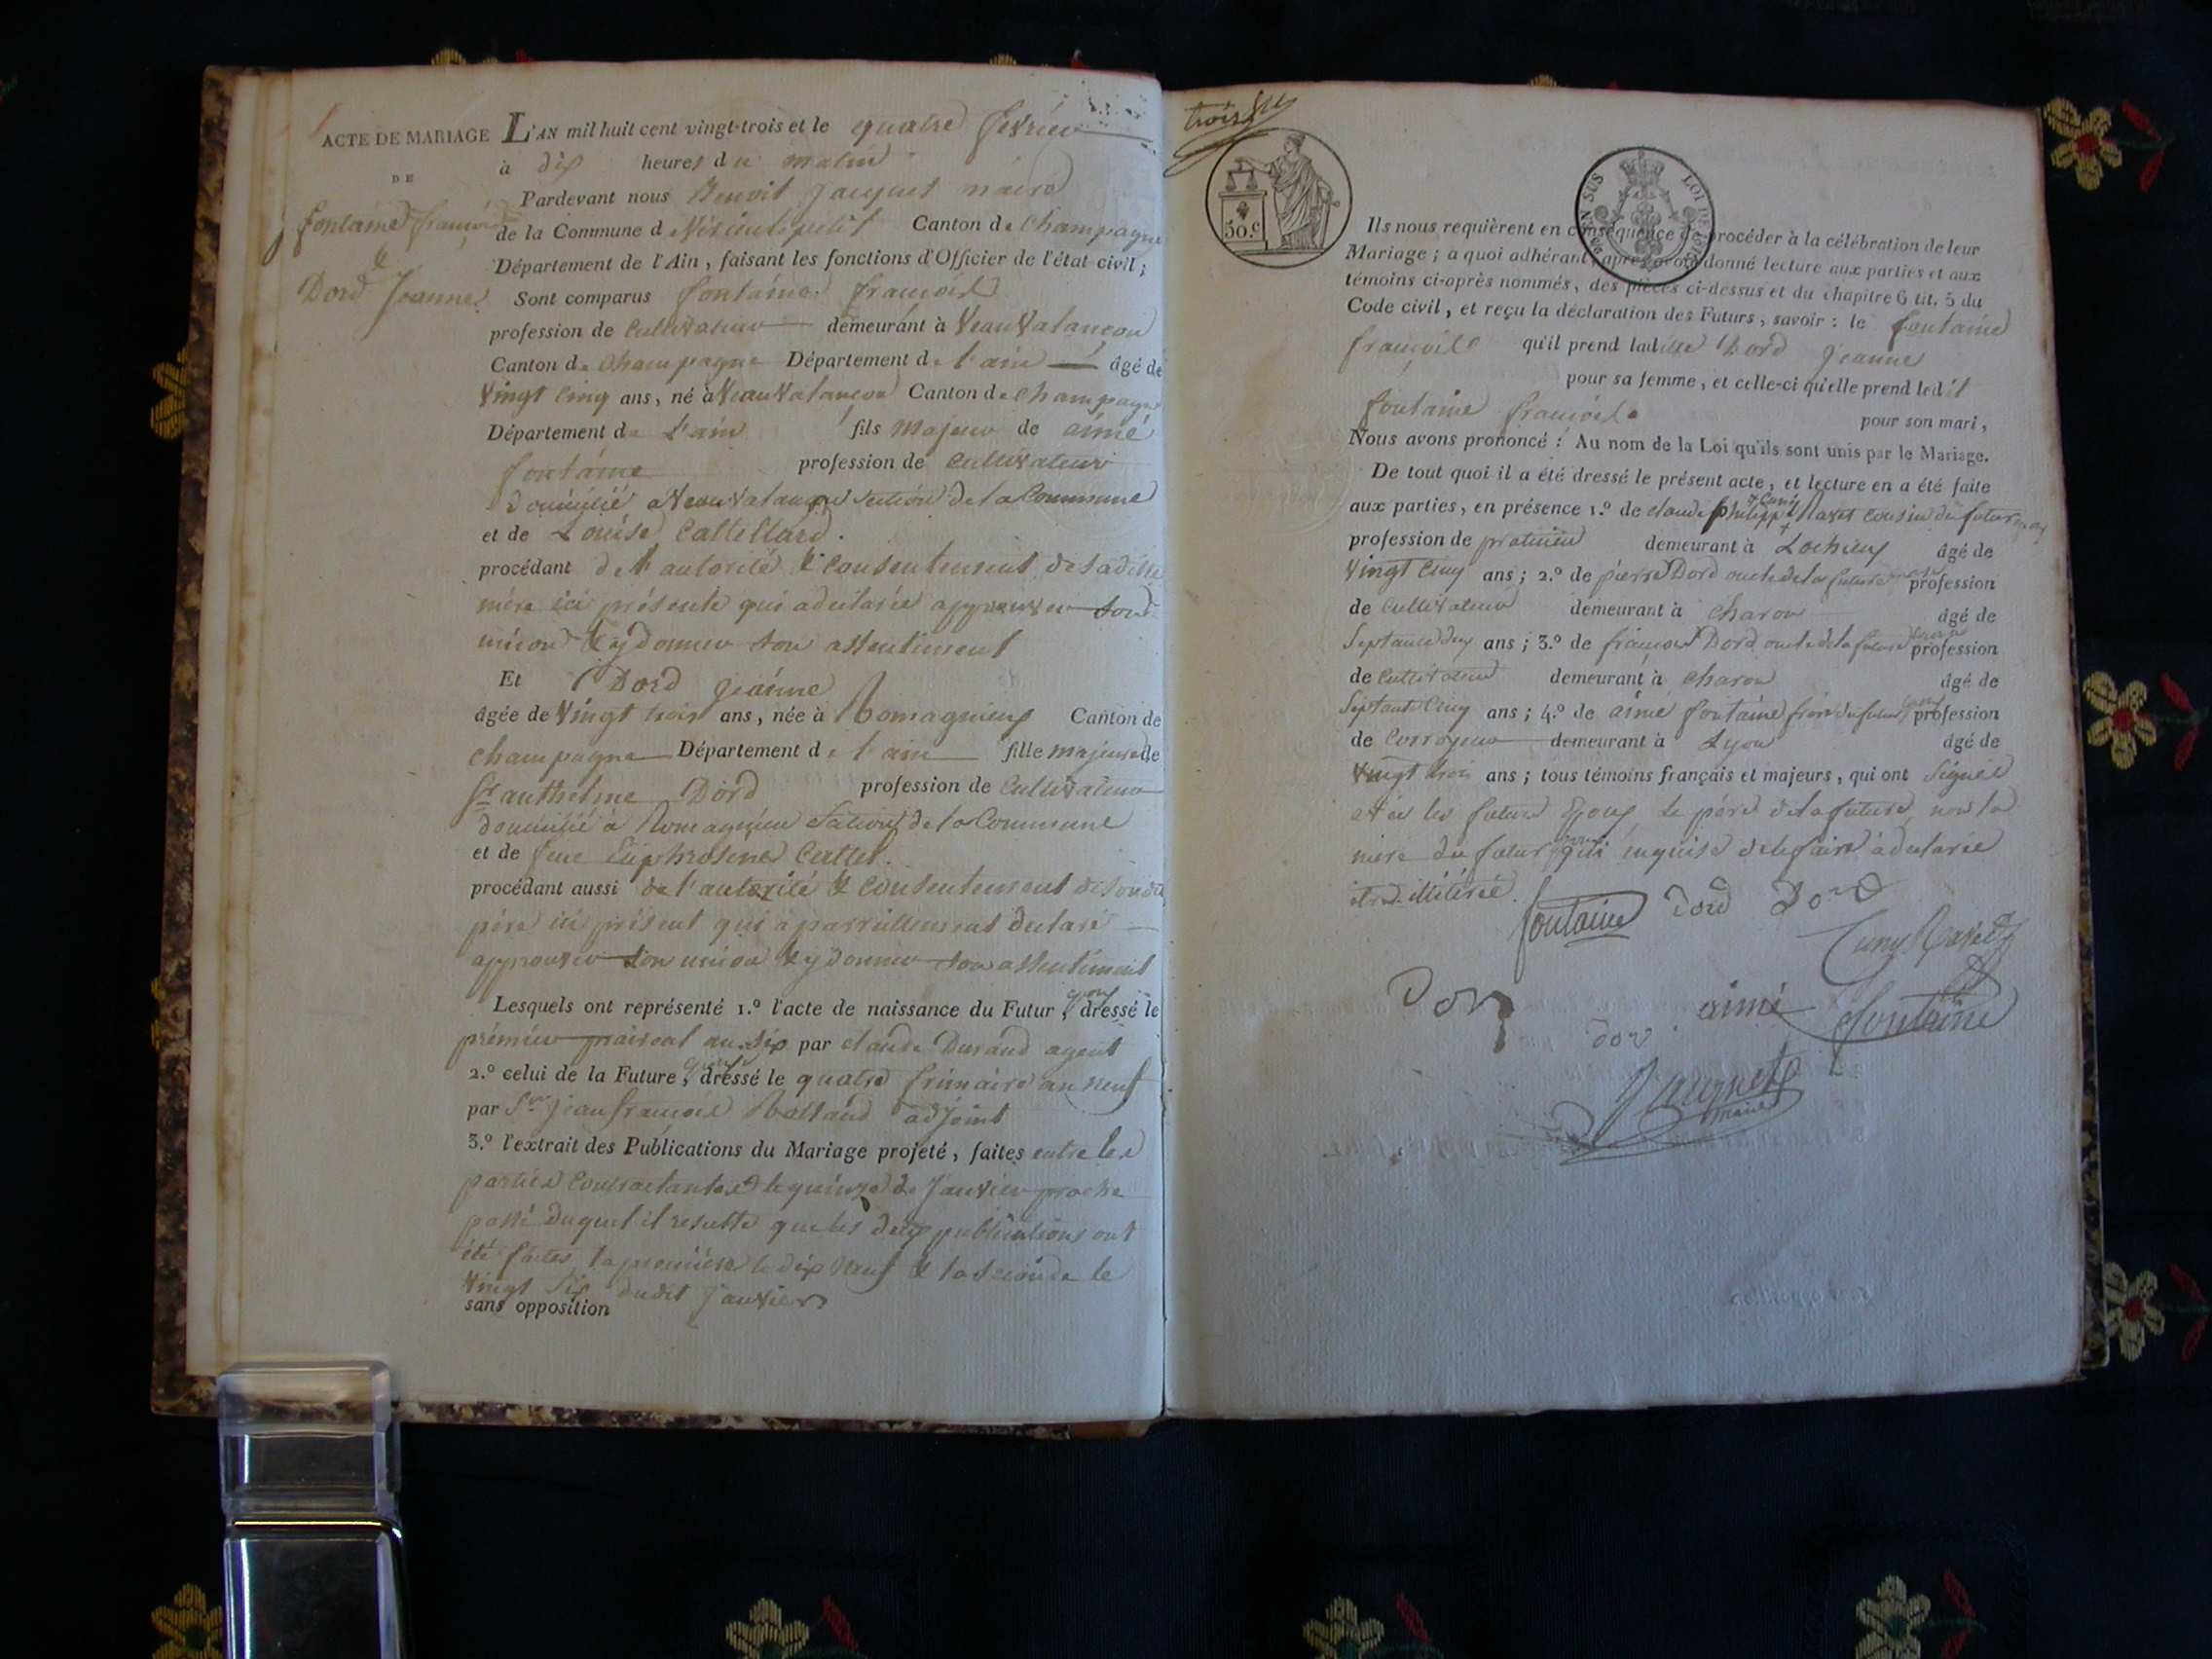 ACTE DE MARIAGE
DE
fontaine françois
&
Dord Jeanne
L'AN mil huit cent vingt-trois et le quatre fevrier
à dix heures du matin
Pardevant nous Benoit Jacquet maire
de la Commune de Virieu le petit Canton de Champagne
Département de l'Ain, faisant les fonctions d'Officier de l'état civil;
Sont comparus fontaine françois
profession de Cultivateur demeurant à Veauvalançon
Canton de Champagne Département de l'ain âgé de
Vingt Cinq ans, né à Veauvalançon Canton de Champagne
Département de L'ain fils Majeur de aimé
fontaine profession de Cultivateur
domicilié a Veauvalançon section de la Commune
et de Louise Cattellard.
procédant de l'autorité & Consentement de sadite
mère ici présente qui a déclarée approuver son
union & y donner son assentiment
Et Dord Jeanne
âgée de Vingt trois ans, née à Romagnieux Canton de
Champagne Département de l'ain fille majeure de
Sr anthelme Dord profession de Cultivateur
domicilié à Romagnieu Section de la Commune
et de feue Euphrosine Cattet.
procédant aussi de l'autorité & Consentement de son dit
père ici présent qui a pareillement declaré
approuver son union & y donner son assentiment
Lesquels ont représenté 1.º l'acte de naissance du Futur époux, dressé le
prémier praireal an six par claude Durand agent
2.º celui de la Future épouse, dressé le quatre frimaire an neuf
par Sr Jean françois Rolland adjoint
3.º l'extrait des Publications du Mariage projeté, faites entre les
parties Contractantes le quinze de Janvier proche
passé duquel il resulte que les deux publications ont
été faites la premiere le dix Neuf & la seconde le
Vingt Six dudit Janvier
sans opposition
trois
50.c
EN SUS
LOI DE
Ils nous requièrent en conséquence de procéder à la célébration de leur
Mariage; a quoi adhérant, après avoir donné lecture aux parties et aux
témoins ci-après nommés, des pièces ci-dessus et du chapitre 6 tit. 5 du
Code civil, et reçu la déclaration des Futurs, savoir: le fontaine
françois qu'il prend ladite Dord Jeanne
pour sa femme, et celle-ci qu'elle prend ledit
fontaine françois pour son mari,
Nous avons prononcé: Au nom de la Loi qu'ils sont unis par le Mariage.
De tout quoi il a été dressé le présent acte, et lecture en a été faite
aux parties, en présence 1.º de claude philippe Cuny Ravet Cousin du futur
profession de praticien demeurant à Lochieux âgé de
Vingt Cinq ans; 2.º de pierre Dord oncle de la future profession
de Cultivateur demeurant à charon âgé de
Septante deux ans; 3.º de françois Dord oncle de la future profession
de Cultivateur demeurant à charon âgé de
Septante Cinq ans; 4.º de aimé fontaine frère du futur époux profession
de Corroyeur demeurant à Lyon âgé de
Vingt trois ans; tous témoins français et majeurs, qui ont Signés
avec les futurs Époux le père de la future, non la
mere du futur époux qui enquise de le faire a déclarée
être illitérée.
fontaine Dord Dord
Cuny Ravet
Dord aimé fontaine
dor
Jacquet
maire